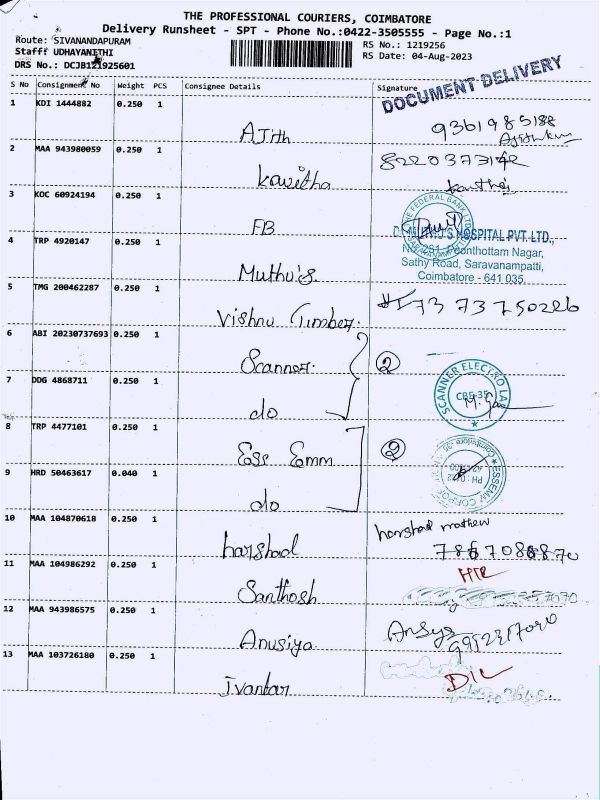 THE PROFESSIONAL COURIERS, COIMBATORE
Delivery Runsheet - SPT - Phone No.:0422-3505555 - Page No.:1
Route: SIVANANDAPURAM
Staff: UDHAYANITHI
DRS No.: DCJB121925601
RS No.: 1219256
RS Date: 04-Aug-2023
S No Consignment No Weight PCS Consignee Details Signature
DOCUMENT DELIVERY
1 KDI 1444882 0.250 1
Ajith 9361985188
2 MAA 943980059 0.250 1
Kavitha
3 KOC 60924194 0.250 1
FB
THE FEDERAL BANK LTD
4 TRP 4920147 0.250 1
Muthu's
HOSPITAL PVT. LTD.,
Ponthottam Nagar,
Sathy Road, Saravanampatti,
Coimbatore - 641 035.
5 TMG 200462287 0.250 1
Vishnu Timber. 73 73750226
6 ABI 20230737693 0.250 1
Scanner. 2
SCANNER ELECTRO LA
CBE-35
7 DDG 4868711 0.250 1
do
8 TRP 4477101 0.250 1
Ess Emm 2
9 HRD 50463617 0.040 1
do
10 MAA 104870618 0.250 1
harshad
harshad mathew
11 MAA 104986292 0.250 1
Santhosh
12 MAA 943986575 0.250 1
Anusiya
13 MAA 103726180 0.250 1
DIL